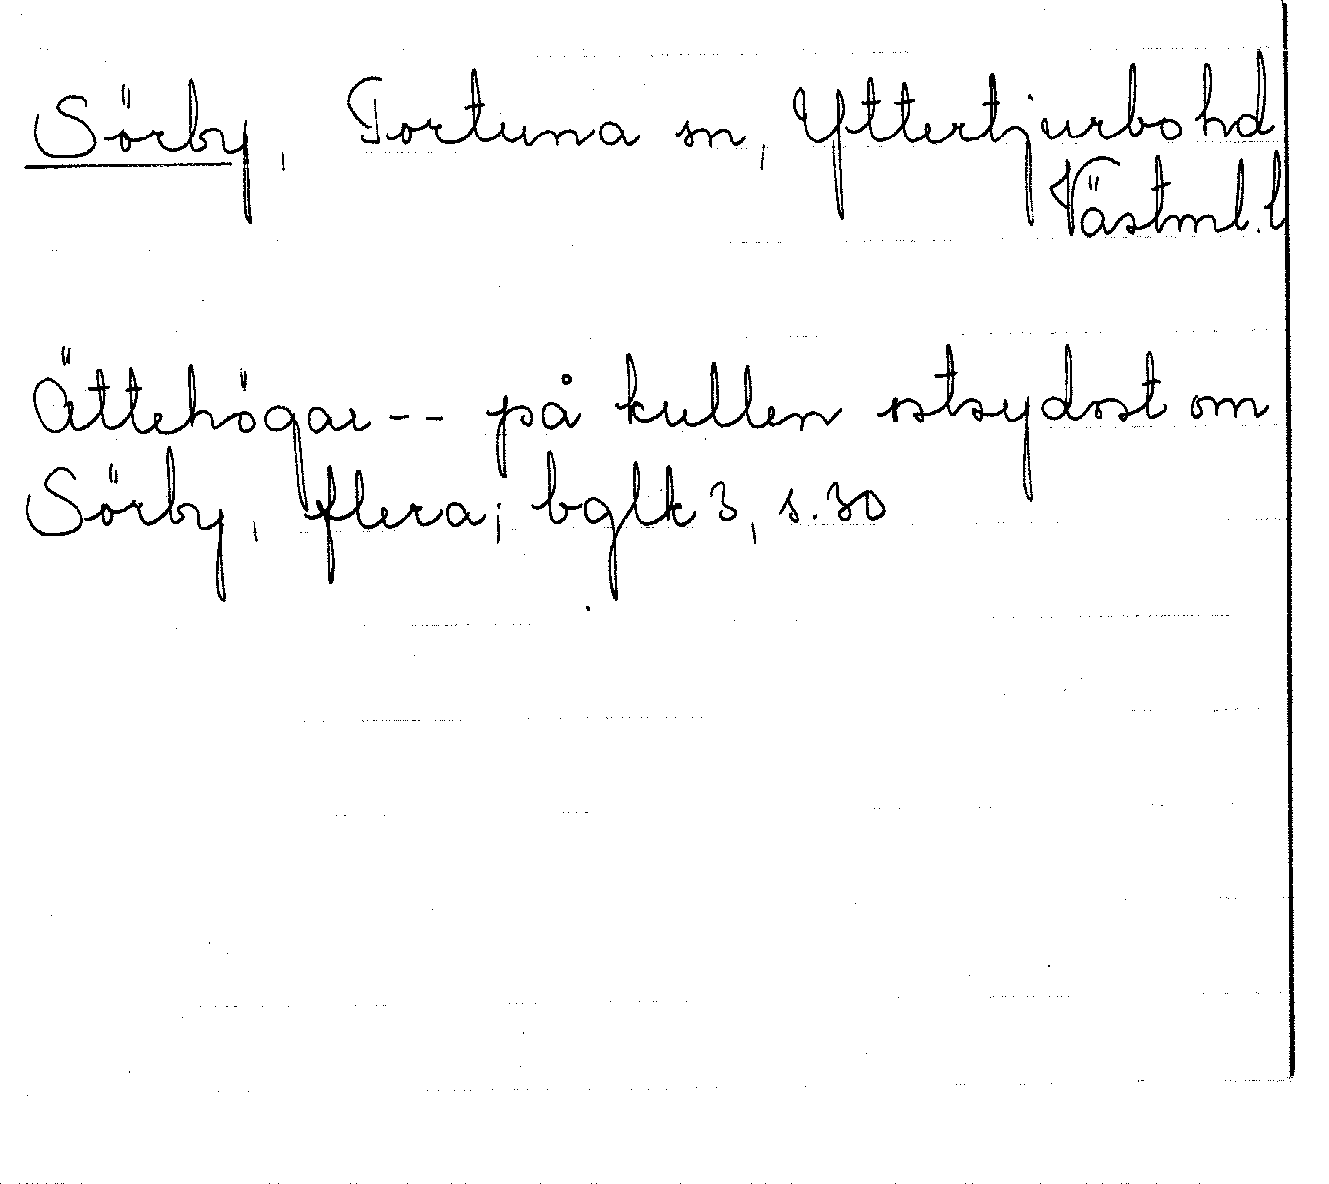 Sörby, Tortuna sn, Yttertjurbo hd
Västml. l
Ättehögar -- på kullen ostsydost om
Sörby, flera; bglk 3, s. 30